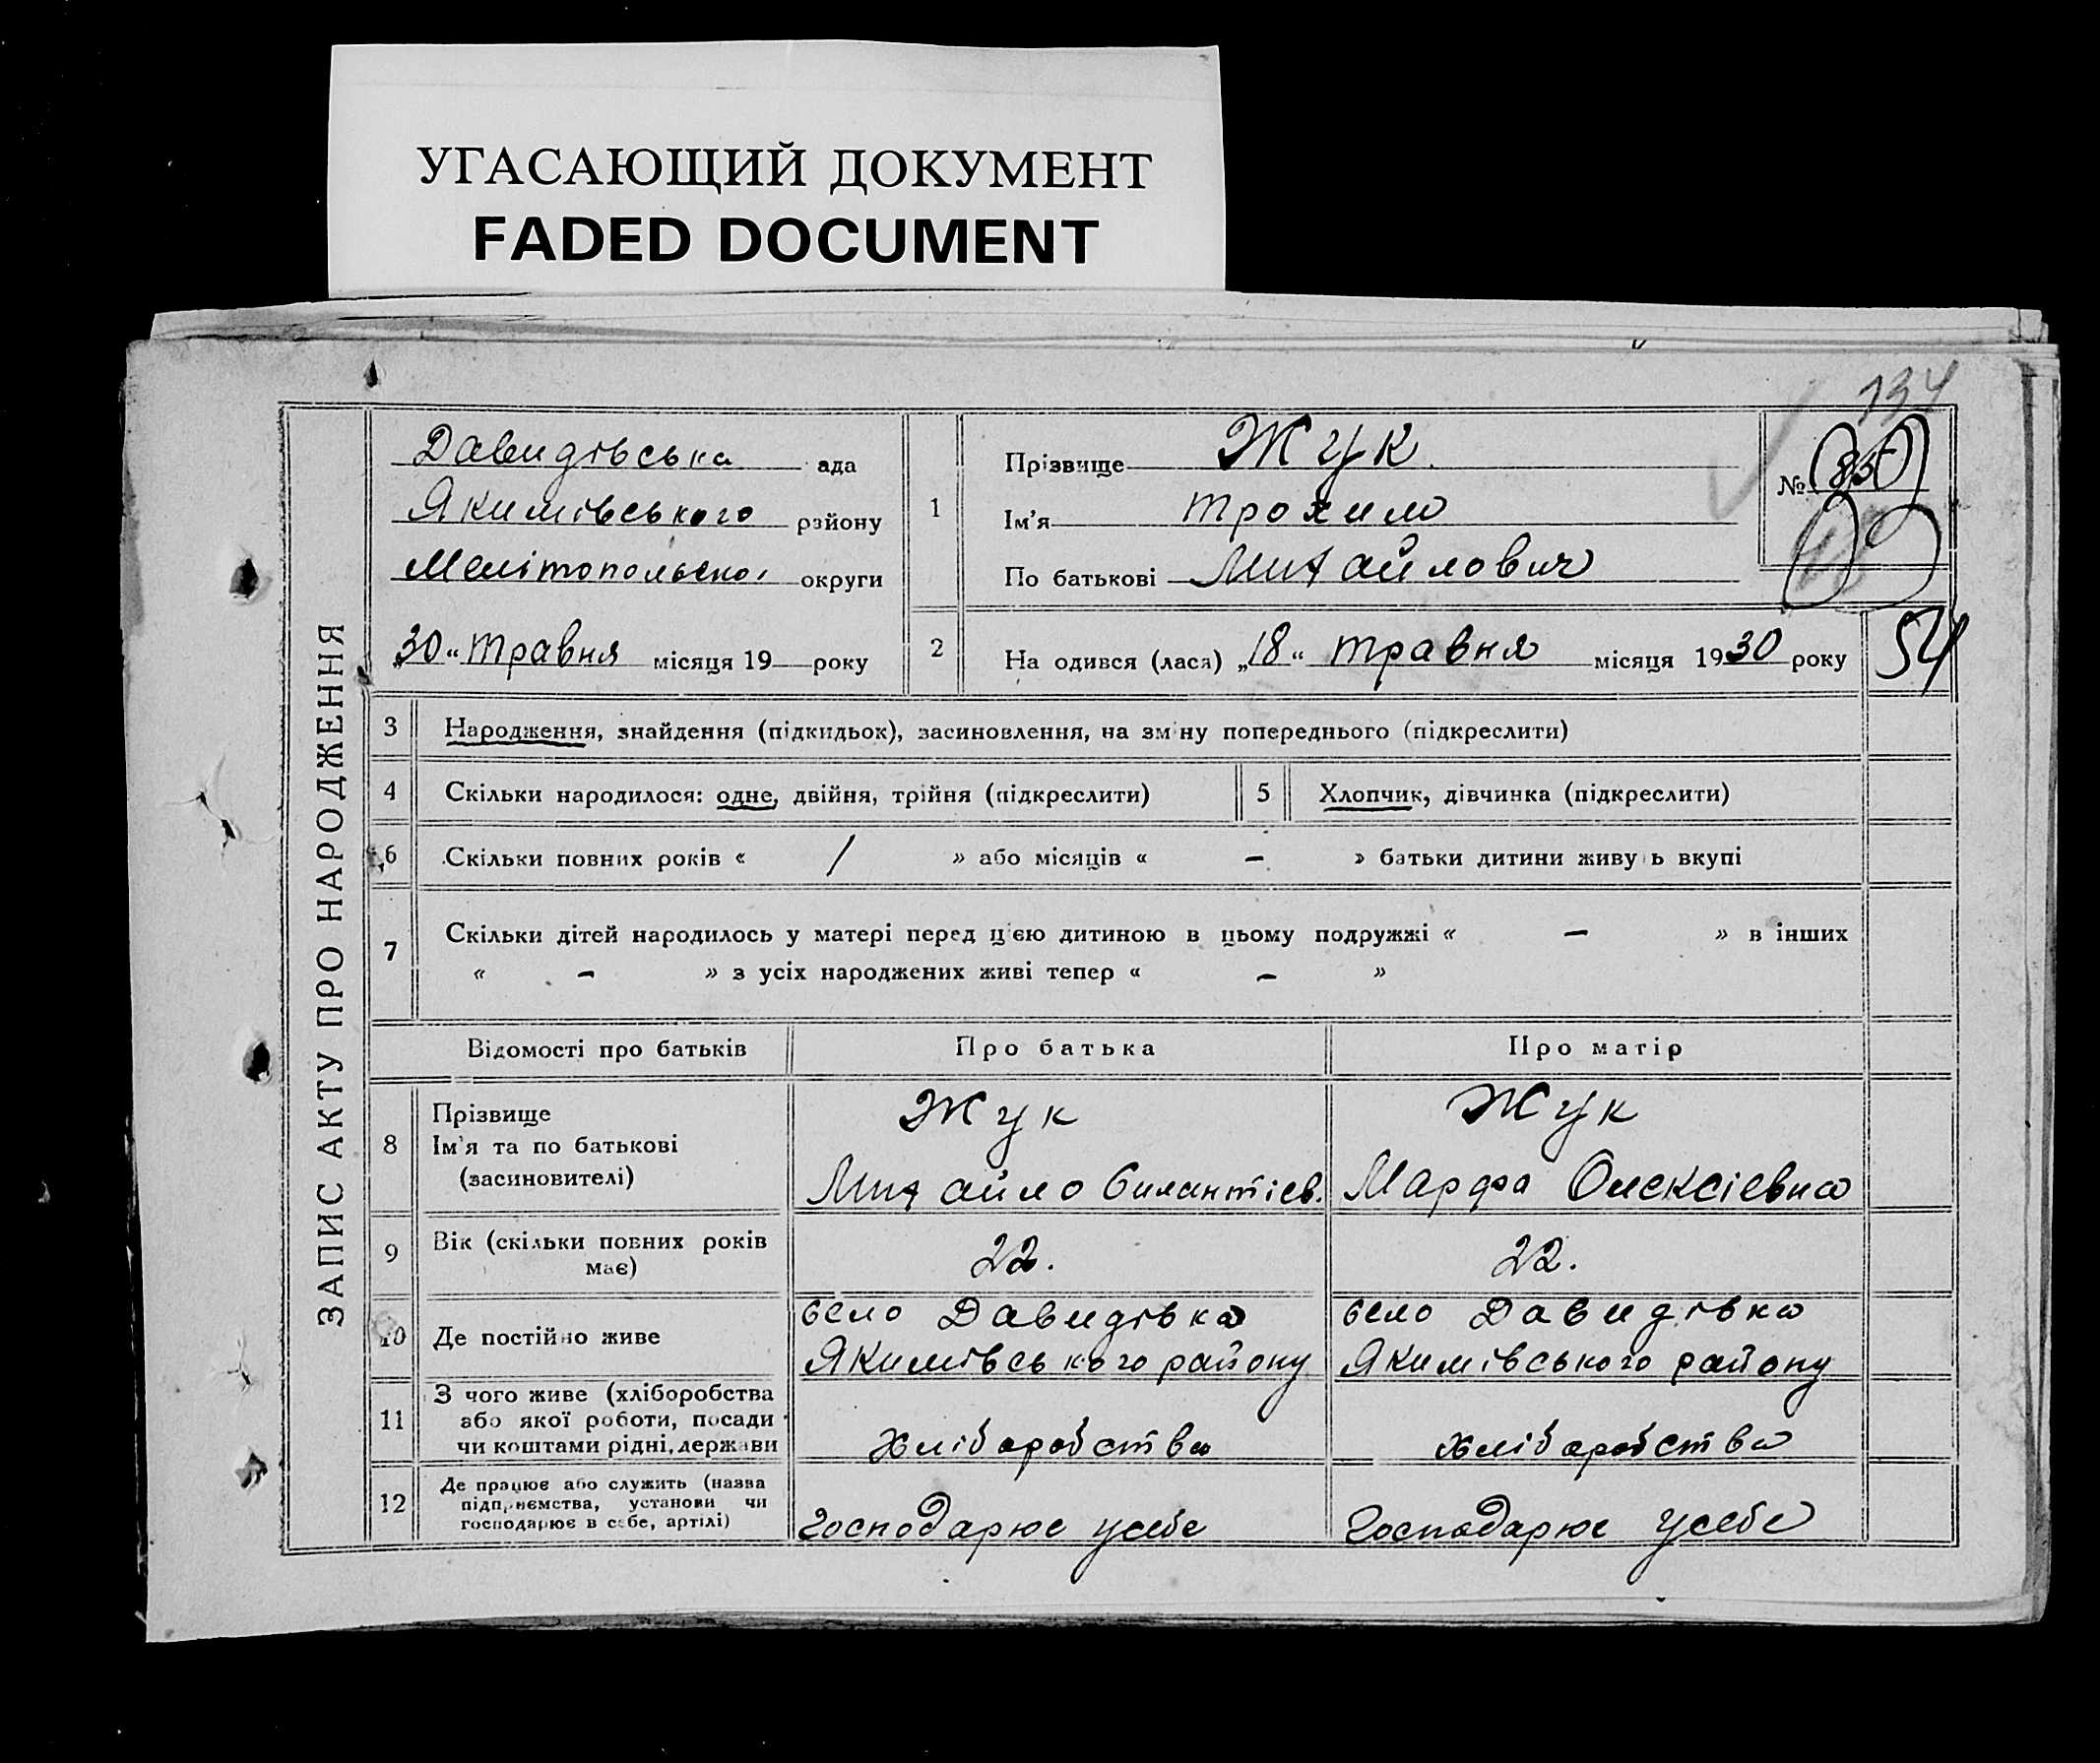 УГАСАЮЩИЙ ДОКУМЕНТ
FADED DOCUMENT
134
ЗАПИС АКТУ ПРО НАРОДЖЕННЯ
Давидівська ада
Якимівського району
Мелітопольської округи
„30“ травня місяця 19 року
1
Прізвище Жук.
Ім’я Трохим
По батькові Михайлович
№
2
На одився (лася) „18“ травня місяця 1930 року
54
3 Народження, знайдення (підкидьок), засиновлення, на зміну попереднього (підкреслити)
4 Скільки народилося: одне, двійня, трійня (підкреслити) 5 Хлопчик, дівчинка (підкреслити)
6 Скільки повних років « / » або місяців « - » батьки дитини живу ь вкупі
7 Скільки дітей народилось у матері перед цією дитиною в цьому подружжі « - » в інших
« - » з усіх народжених живі тепер « - »
Відомості про батьків Про батька Про матір
8 Прізвище
Ім’я та по батькові
(засиновителі)
Жук
Михайло Силантієв.
Жук
Марфа Олексієвна
9 Вік (скільки повних років
має)
22.
22.
10 Де постійно живе
село Давидівка
Якимівського району
село Давидівка
Якимівського району
11 З чого живе (хліборобства
або якої роботи, посади
чи коштами рідні, держави
хліборобства
хліборобства
12 Де працює або служить (назва
підприємства, установи чи
господарює в себе, артілі)
Господарює усебе
Господарює усебе